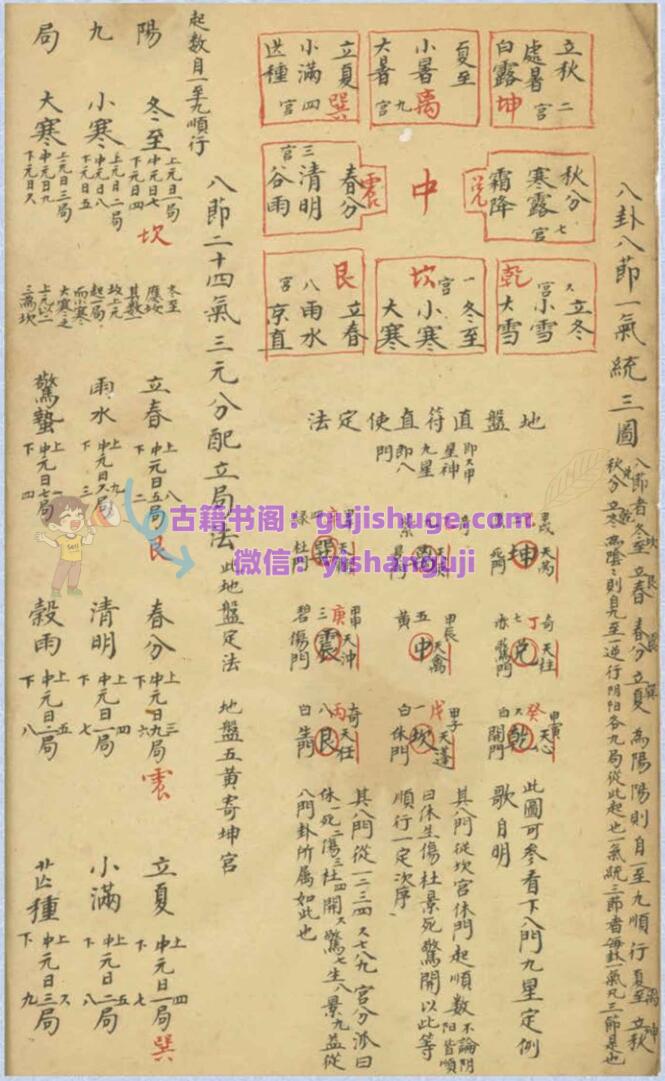 八卦八節一氣統三圖
八節者冬至立春春分立夏為陽陽則自一至九順行夏至立秋
秋分立冬為陰陰則自九至一逆行阴阳各九局從此起也一氣統三節者每一氣凡三節是也
立秋 二
處暑 宮
白露 坤
夏至
小暑 離
大暑 九宮
立夏 巽
小滿 四
芒種 宮
秋分 七
寒露 宮
霜降
兌
中
春分
三清明
宮谷雨
震
立冬
小雪 宮
大雪
乾
冬至
一宮
小寒
大寒
坎
立春
雨水
八宮
艮
地盤直符直使定法
即六甲
星神
九星
即八
門
天芮
坤
死門
離
天輔
巽
杜門
綠
丁奇 天柱
七 兌
赤 驚門
甲辰 天禽
五 中
黃
庚 甲申 天沖
三 震
碧 傷門
癸 甲寅 天心
六 乾
白 開門
戊 甲子 天蓬
一 坎
白 休門
丙奇 天任
八 艮
白 生門
此圖可參看下八門九星定例
歌自明
其八門從坎宮休門起順數不論阴阳皆順
曰休生傷杜景死驚開以此等
順行一定次序
其八門從一二三四六七八九宮分派曰
休一死二傷三杜四開六驚七生八景九益從
八門卦所屬如此也
八節二十四氣三元分配立局法 此地盤定法 地盤五黃寄坤宮
起數自一至九順行
陽九局
冬至 上元日一局 中元日七 下元日四 坎
小寒 上元日二局 中元日八 下元日五
大寒 上元日三局 中元日九 下元日六
冬至
應坎
其數一
坎上元
起一局
而小寒
大寒之
上元以二
三為坎
立春 上八 中元日五局 下二 艮
雨水 上九 中元日六局 下三
驚蟄 上一 中元日七局 下四
春分 上三 中元日九局 下六 震
清明 上四 中元日一局 下七
穀雨 上五 中元日二局 下八
立夏 上四 中元日一局 下七 巽
小滿 上五 中元日二局 下八
芒種 上六 中元日三局 下九
古籍书阁：gujishuge.com
微信：yishanguji